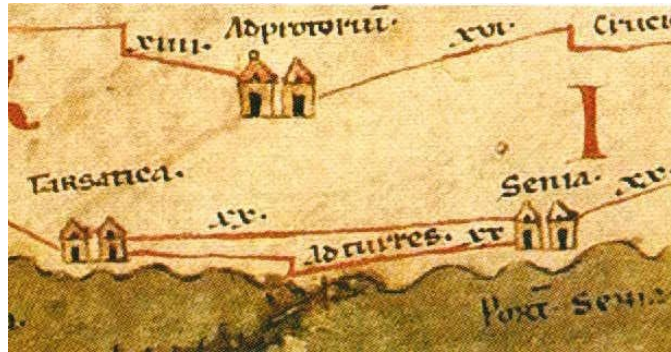 xiiii. Adprotoriū. xvi. Crucı
Tarsatica. Senia. xx.
xx.
Adturres. xx
Port̄. Senia